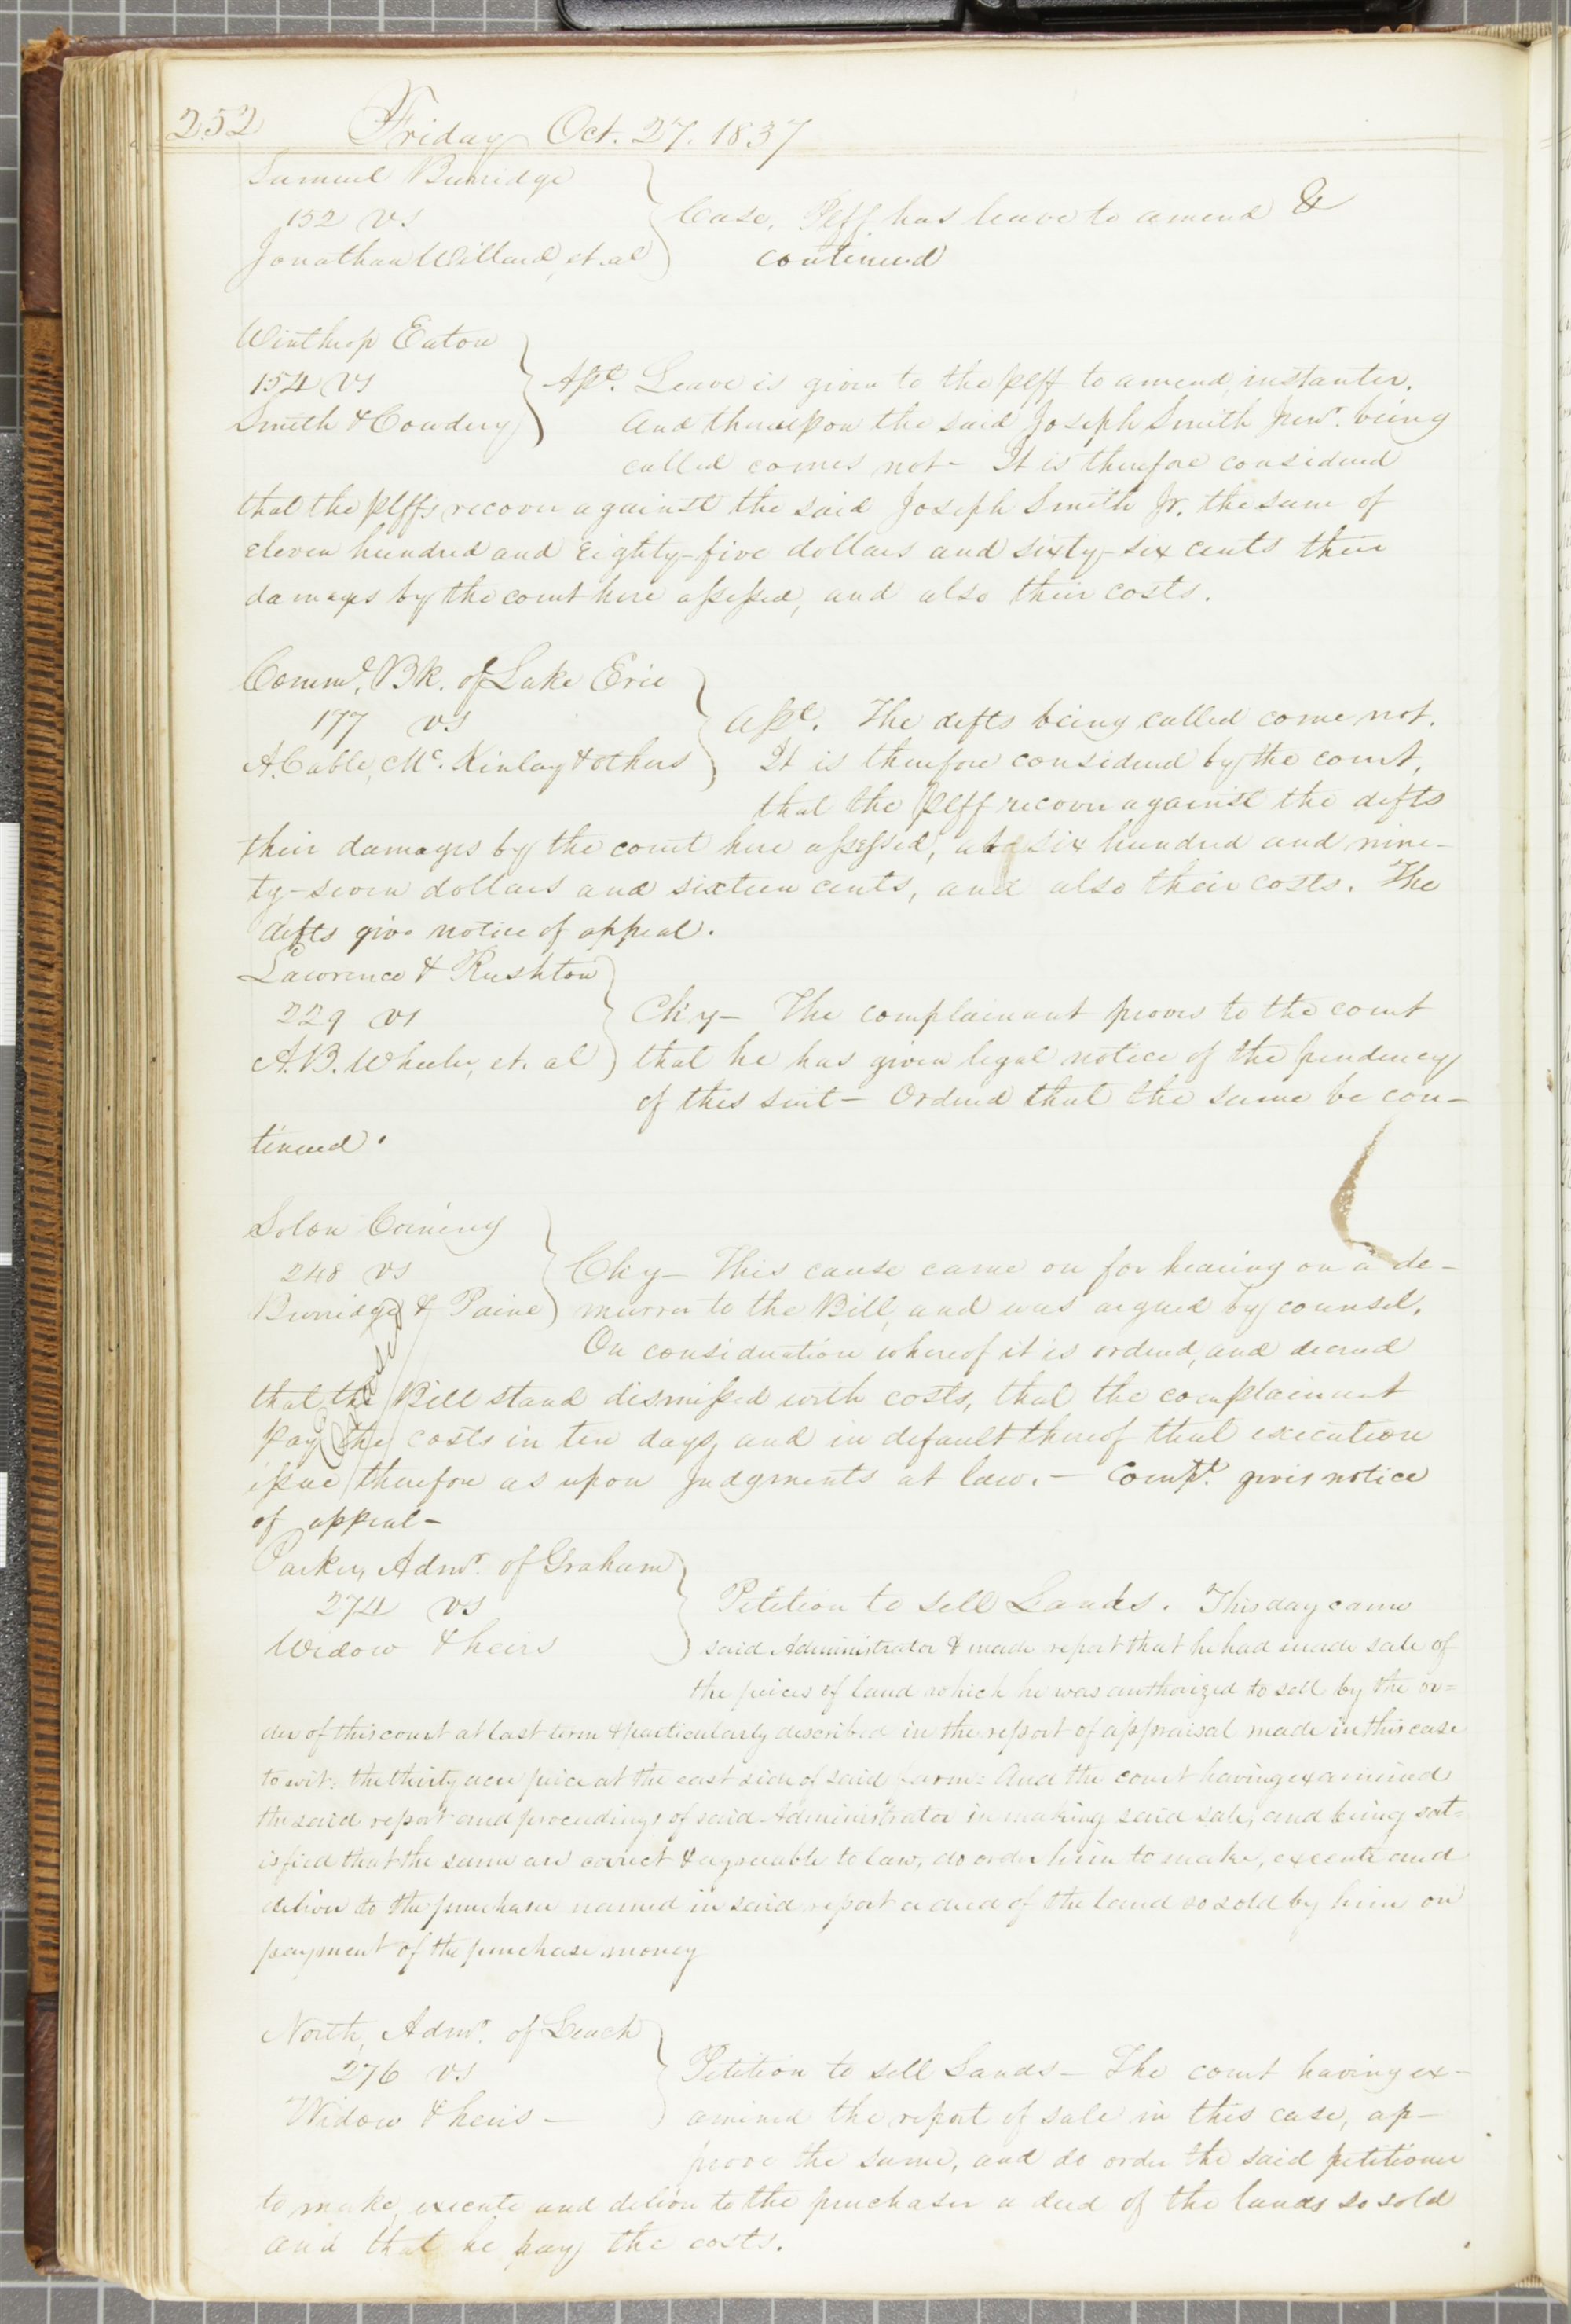 252 Friday Oct. 27. 1837
Samuel Burridge
152 vs
Jonathan Willard, et. al
Case. Plff. has leave to amend &
continued
Winthrop Eaton
154 vs
Smith & Cowdery
Aßt. Leave is given to the plff to amend, instanter.
And thereupon the said Joseph Smith Junr. being
called comes not - It is therefore considered
that the plffs recover against the said Joseph Smith Jr. the sum of
eleven hundred and eighty-five dollars and sixty-six cents their
damages by the court here assessed, and also their costs.
Comml. Bk. of Lake Erie
177 vs
A. Cable, Mc. Kinlay & others
Aßt. The defts being called come not.
It is therefore considered by the court,
that the plff recover against the defts
their damages by the court here assessed, at six hundred and nine-
ty-seven dollars and sixteen cents, and also their costs. The
defts give notice of appeal.
Lawrence & Rushton
229 vs
A. B. Wheeler, et. al
Ch'y - The complainant proves to the court
that he has given legal notice of the pendency
of this suit - Ordered that the same be con-
tinued.
Solon Corning
248 vs
Burridge & Paine
Ch'y - This cause came on for hearing on a de-
murrer to the Bill, and was argued by counsel.
On consideration whereof it is ordered, and decreed
that the Bill stand dismissed with costs, that the complainant
pay the costs in ten days, and in default thereof that execution
issue therefore as upon judgments at law. - Compt. gives notice
of appeal -
Parker, Admr. of Graham
274 vs
Widow & heirs
Petition to sell Lands. This day came
said Administrator & made report that he had made sale of
the peices of land which he was authorized to sell by the or=
der of this court at last term & particularly described in the report of appraisal made in this case
to wit: the thirty acre peice at the east side of said farm: And the court having examined
the said report and proceedings of said Administrator in making said sale, and being sat=
isfied that the same are correct & agreeable to law, do order him to make, execute and
deliver to the purchaser named in said report a deed of the land so sold by him on
payment of the purchase money
North, Admr. of Leach
276 vs
Widow & heirs -
Petition to sell Lands - The court having ex-
amined the report of sale in this case, ap-
prove the same, and do order the said petitioner
to make, execute and deliver to the purchaser a deed of the lands so sold
and that he pay the costs.